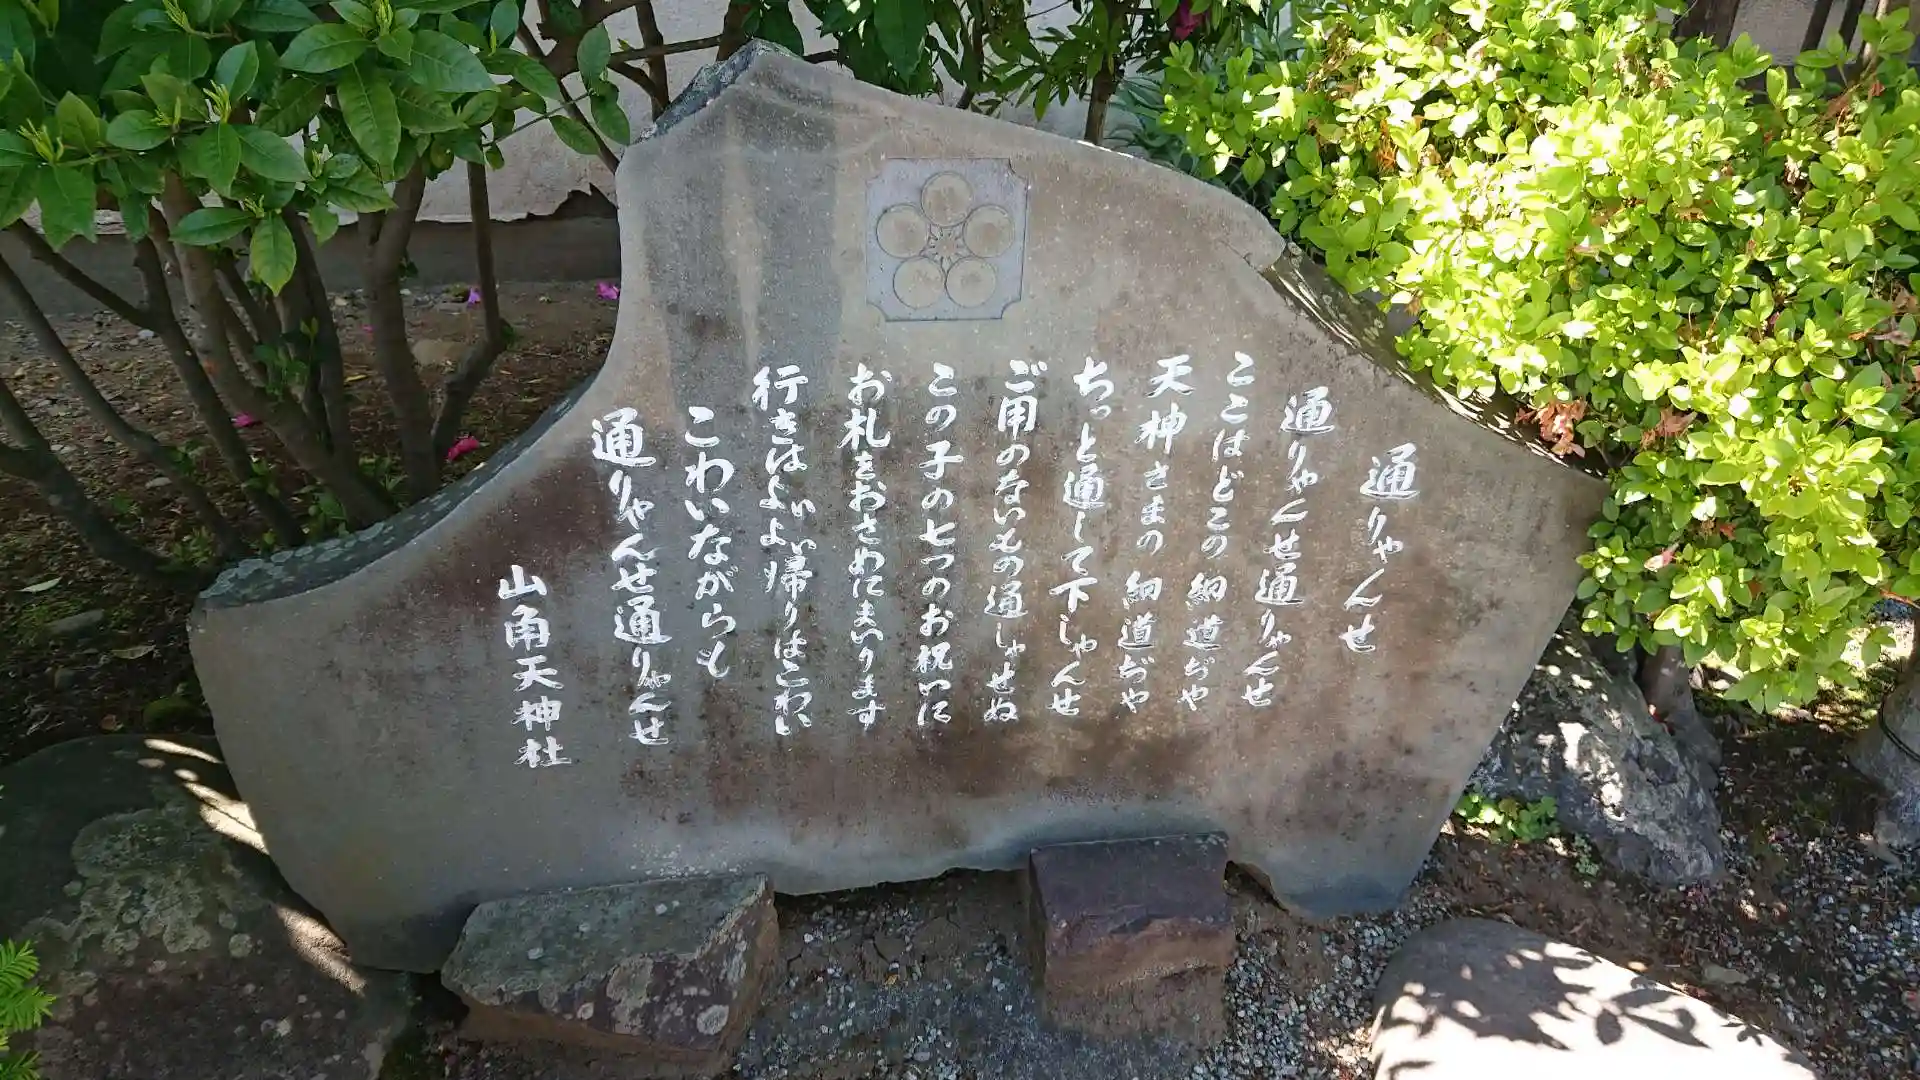 通りゃんせ
通りゃんせ通りゃんせ
ここはどこの細道ぢや
天神さまの細道ぢや
ちっと通して下しゃんせ
ご用のないもの通しゃせぬ
この子の七つのお祝いに
お札をおさめにまいります
行きはよいよい帰りはこわい
こわいながらも
通りゃんせ通りゃんせ
山角天神社